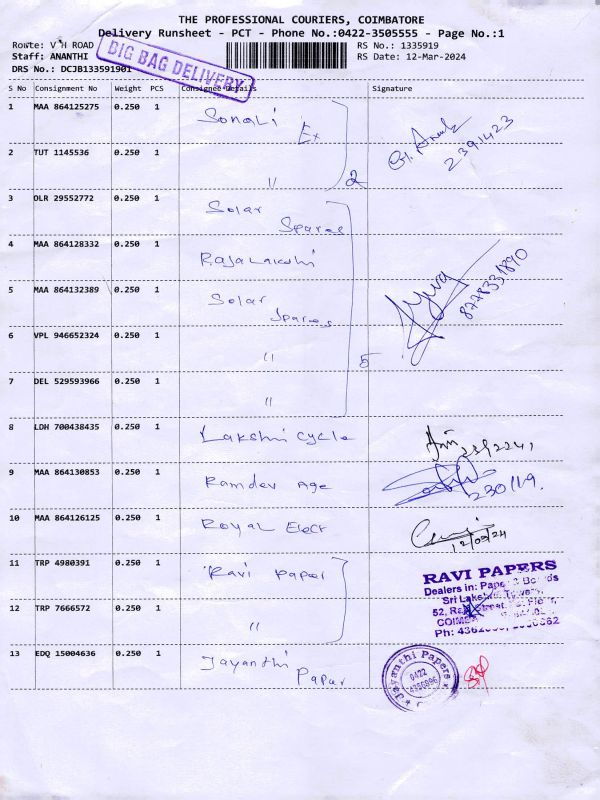 THE PROFESSIONAL COURIERS, COIMBATORE
Delivery Runsheet - PCT - Phone No.:0422-3505555 - Page No.:1
Route: V H ROAD RS No.: 1335919
Staff: ANANTHI RS Date: 12-Mar-2024
DRS No.: DCJB133591901
BIG BAG DELIVERY
S No Consignment No Weight PCS Consignee Details Signature
1 MAA 864125275 0.250 1 Sonali Ex
2391423
2 TUT 1145536 0.250 1 " 2
3 DLR 29552772 0.250 1 Solar Spares
4 MAA 864128332 0.250 1 Rajalakshi
8778331890
5 MAA 864132389 0.250 1 Solar Spares
6 VPL 946652324 0.250 1 " 5
7 DEL 529593966 0.250 1 "
8 LDH 700438435 0.250 1 Lakshi Cycle
9 MAA 864130853 0.250 1 Ramdev Age
230119.
10 MAA 864126125 0.250 1 Royal Elect
12/03/24
11 TRP 4980391 0.250 1 Ravi Paper
RAVI PAPERS
Dealers in: Paper & Boards
Sri Lakshmi Towers,
12 TRP 7666572 0.250 1 "
13 EDQ 15004636 0.250 1 Jayanthi Papar
Jayanthi Papers
0422